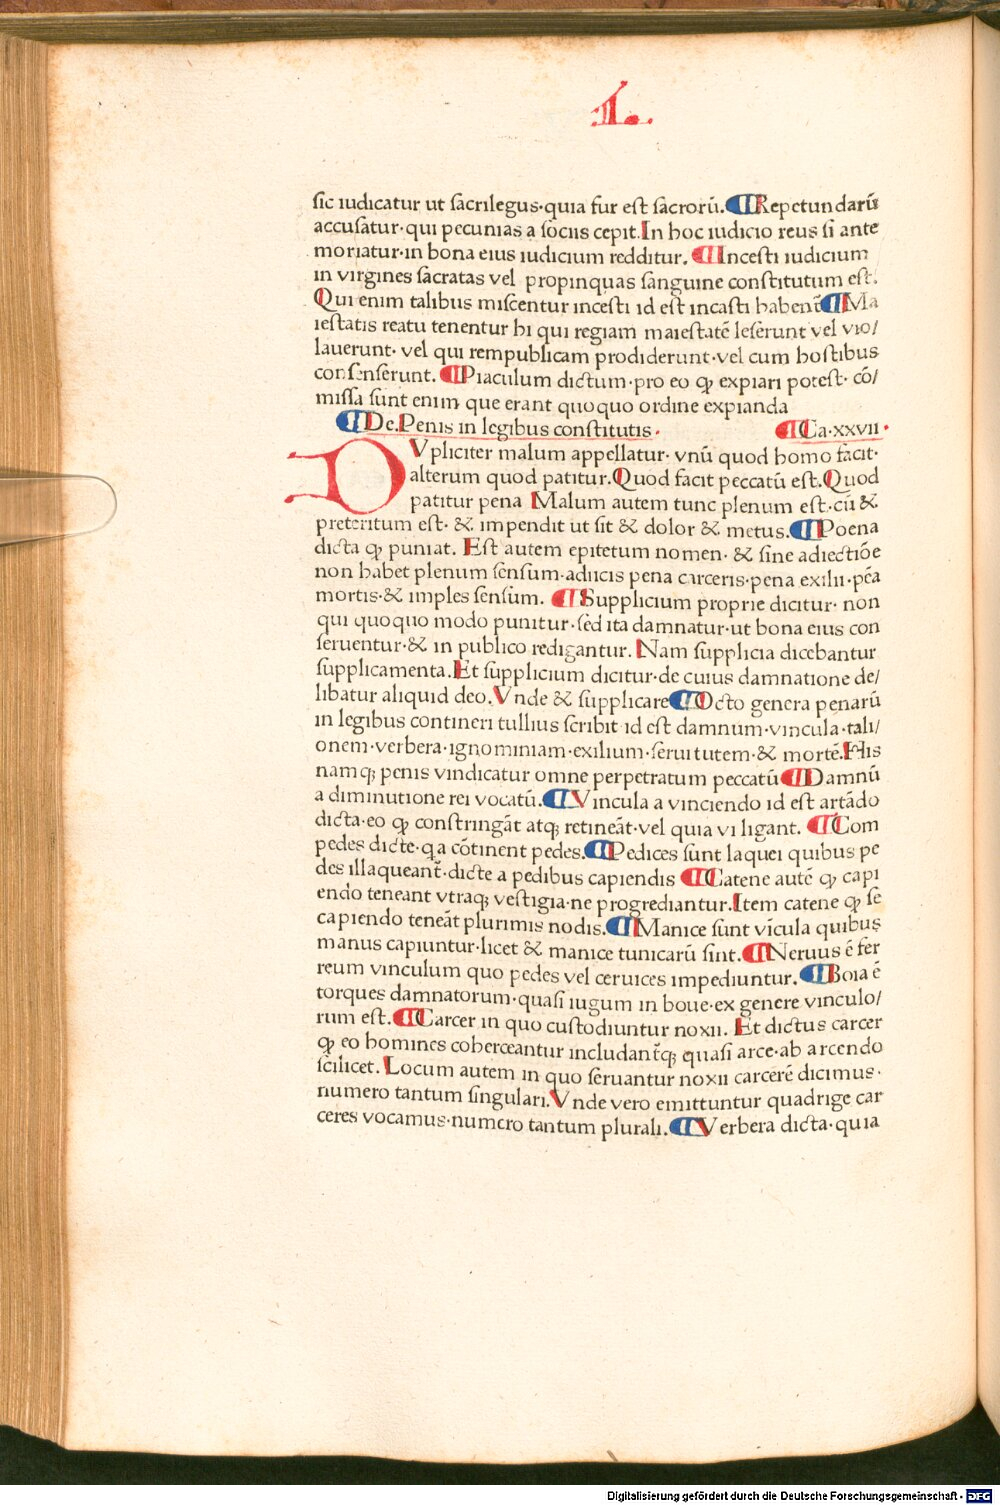 L.
sic iudicatur ut sacrilegus·quia fur est sacrorū.¶Repetundarū
accusatur·qui pecunias a sociis cepit.In hoc iudicio reus si ante
moriatur·in bona eius iudicium redditur. ¶Incesti iudicium
in virgines sacratas vel propinquas sanguine constitutum est.
Qui enim talibus miscentur incesti id est incasti habent̄ ¶Ma
iestatis reatu tenentur hi qui regiam maiestatē leserunt vel vio/
lauerunt· vel qui rempublicam prodiderunt·vel cum hostibus
consenserunt. ¶Piaculum dictum·pro eo ꝙ expiari potest· cō/
missa sunt enim que erant quoquo ordine expianda
¶De.Penis in legibus constitutis· ¶Ca·xxvii·
DVpliciter malum appellatur· vnū quod homo facit·
alterum quod patitur.Quod facit peccatū est.Quod
patitur pena Malum autem tunc plenum est·cū &
preteritum est· & impendit ut sit & dolor & metus.¶Poena
dicta ꝙ puniat. Est autem epitetum nomen· & sine adiectiōe
non habet plenum sensum·adiicis pena carceris·pena exilii·pēa
mortis·& imples sensum. ¶Supplicium proprie dicitur· non
qui quoquo modo punitur·sed ita damnatur·ut bona eius con
seruentur·& in publico redigantur. Nam supplicia dicebantur
supplicamenta.Et supplicium dicitur·de cuius damnatione de/
libatur aliquid deo.Vnde & supplicare ¶Octo genera penarū
in legibus contineri tullius scribit id est damnum·vincula·tali/
onem·verbera·ignominiam·exilium·seruitutem·& mortē.His
namqꝫ penis vindicatur omne perpetratum peccatū ¶Damnū
a diminutione rei vocatū.¶Vincula a vinciendo id est artādo
dicta·eo ꝙ constringāt atqꝫ retineāt·vel quia vi ligant. ¶Com
pedes dicte·q a cōtinent pedes.¶Pedices sunt laquei quibus pe
des illaqueant̄·dicte a pedibus capiendis ¶Catene autē ꝙ capi
endo teneant vtraqꝫ vestigia·ne progrediantur.Item catene ꝙ se
capiendo teneāt plurimis nodis.¶Manice sunt vīcula quibus
manus capiuntur·licet & manice tunicarū sint.¶Neruus ē fer
reum vinculum quo pedes vel ceruices impediuntur.¶Boia ē
torques damnatorum·quasi iugum in boue·ex genere vinculo/
rum est.¶Carcer in quo custodiuntur noxii. Et dictus carcer
ꝙ eo homines coherceantur includant̄qꝫ quasi arce·ab arcendo
scilicet. Locum autem in quo seruantur noxii carcerē dicimus·
numero tantum singulari.Vnde vero emittuntur quadrige car
ceres vocamus·numero tantum plurali.¶Verbera dicta·quia
Digitalisierung gefördert durch die Deutsche Forschungsgemeinschaft - DFG